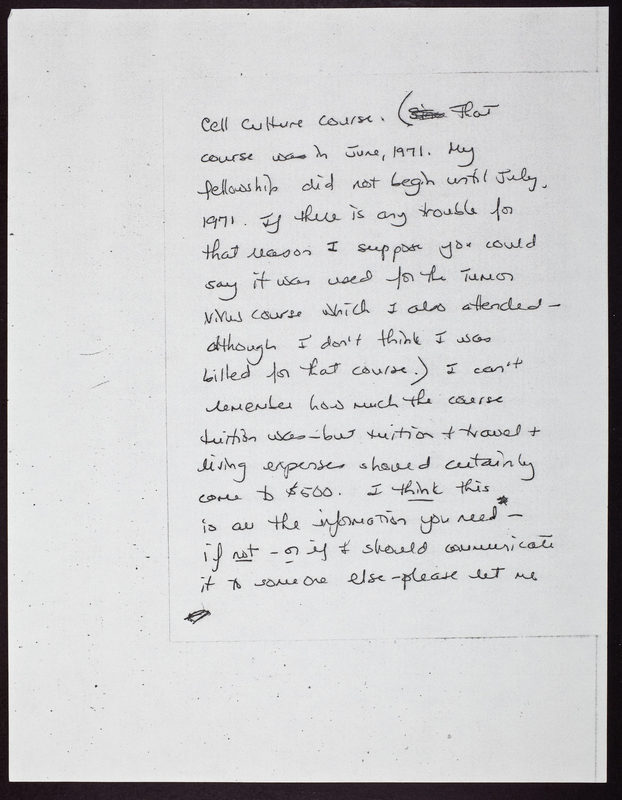 Cell Culture Course. (That
course was in June, 1971. My
fellowship did not begin until July,
1971. If there is any trouble for
that reason I suppose you could
say it was used for the Tumor
Virus course which I also attended –
although I don't think I was
billed for that course.) I can't
remember how much the course
tuition was – but tuition + travel +
living expenses should certainly
come to $500. I think this
is all the information you need* –
if not – or if I should communicate
it to someone else – please let me